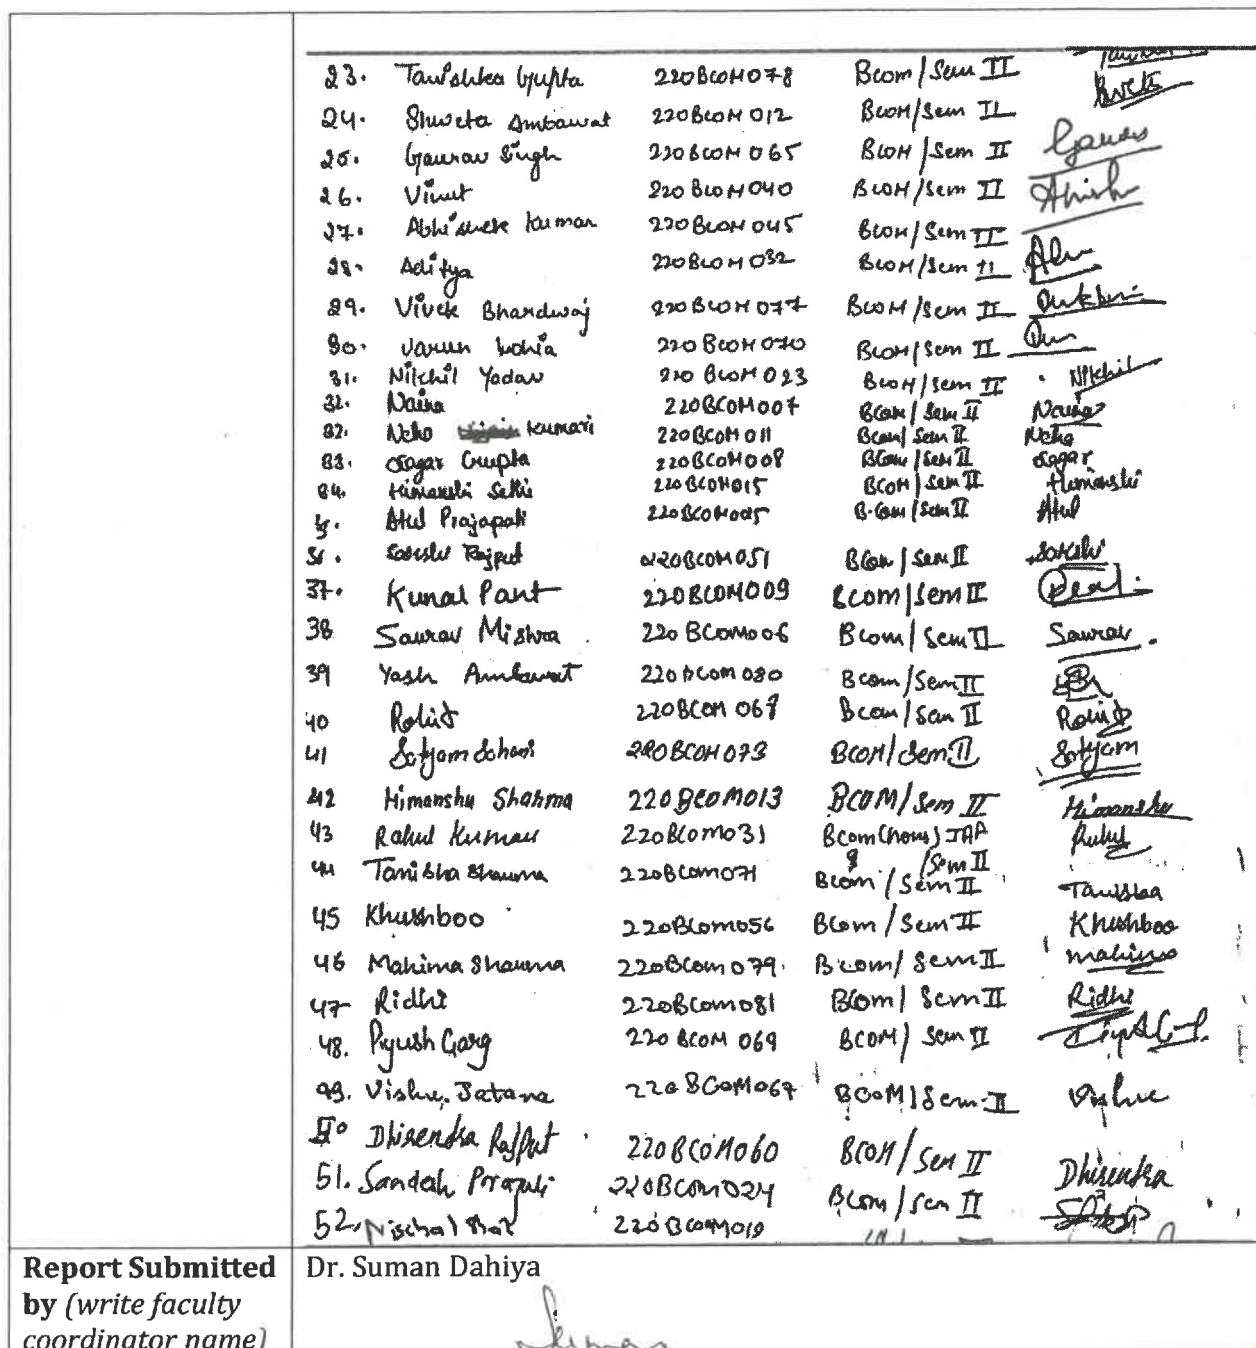 23. Tanishka Gupta 220BCOM078 Bcom/Sem II
24. Shweta Ambawat 220BCOM012 BCOM/Sem II
25. Gaurav Singh 220BCOM065 BCOM/Sem II Gaurav
26. Vinit 220BCOM040 BCOM/Sem II
27. Abhishek Kumar 220BCOM045 BCOM/Sem II Abhishek
28. Aditya 220BCOM032 BCOM/Sem II
29. Vivek Bhardwaj 220BCOM077 BCOM/Sem II
30. Varun 220BCOM070 BCOM/Sem II
31. Nikhil Yadav 220BCOM023 BCOM/Sem II Nikhil
32. Naina 220BCOM007 BCom/Sem II Naina
32. Neha Kumari 220BCOM011 BCom/Sem II Neha
33. Sagar Gupta 220BCOM008 BCom/Sem II Sagar
34. Himanshi Sethi 220BCOM015 BCOM/Sem II Himanshi
Atul Prajapati B.Com/Sem II Atul
36. Sakshi Rajput 220BCOM051 BCom/Sem II Sakshi
37. Kunal Pant 220BCOM009 Bcom/Sem II
38 Saurav Mishra 220BCOM006 Bcom/Sem II Saurav.
39 Yash Ambawat 220BCOM080 Bcom/Sem II
40 Rohit 220BCOM Bcom/Sem II Rohit
41 Satyam Sahani 220BCOM073 BCOM/Sem II Satyam
42 Himanshu Sharma 220BCOM013 BCOM/Sem II Himanshu
43 Rahul Kumar 220BCOM031 Bcom(hons) Rahul
/Sem II
44 Tanisha Sharma 220BCOM071 Bcom/Sem II Tanishaa
45 Khushboo 220BCOM056 BCom/Sem II Khushboo
46 Mahima Sharma 220BCOM079. Bcom/Sem II Mahima
47 Ridhi 220BCOM081 BCom/Sem II Ridhi
48. Piyush Garg 220BCOM069 BCOM/Sem II
49. Jatana 220BCOM067 BCOM/Sem-II
Dhirendra Rajput 220BCOM060 BCOM/Sem II Dhirendra
51. Sandesh 220BCOM024 BCom/Sem II
52. Nischal 220BCOM019
Report Submitted Dr. Suman Dahiya
by (write faculty
coordinator name) Suman